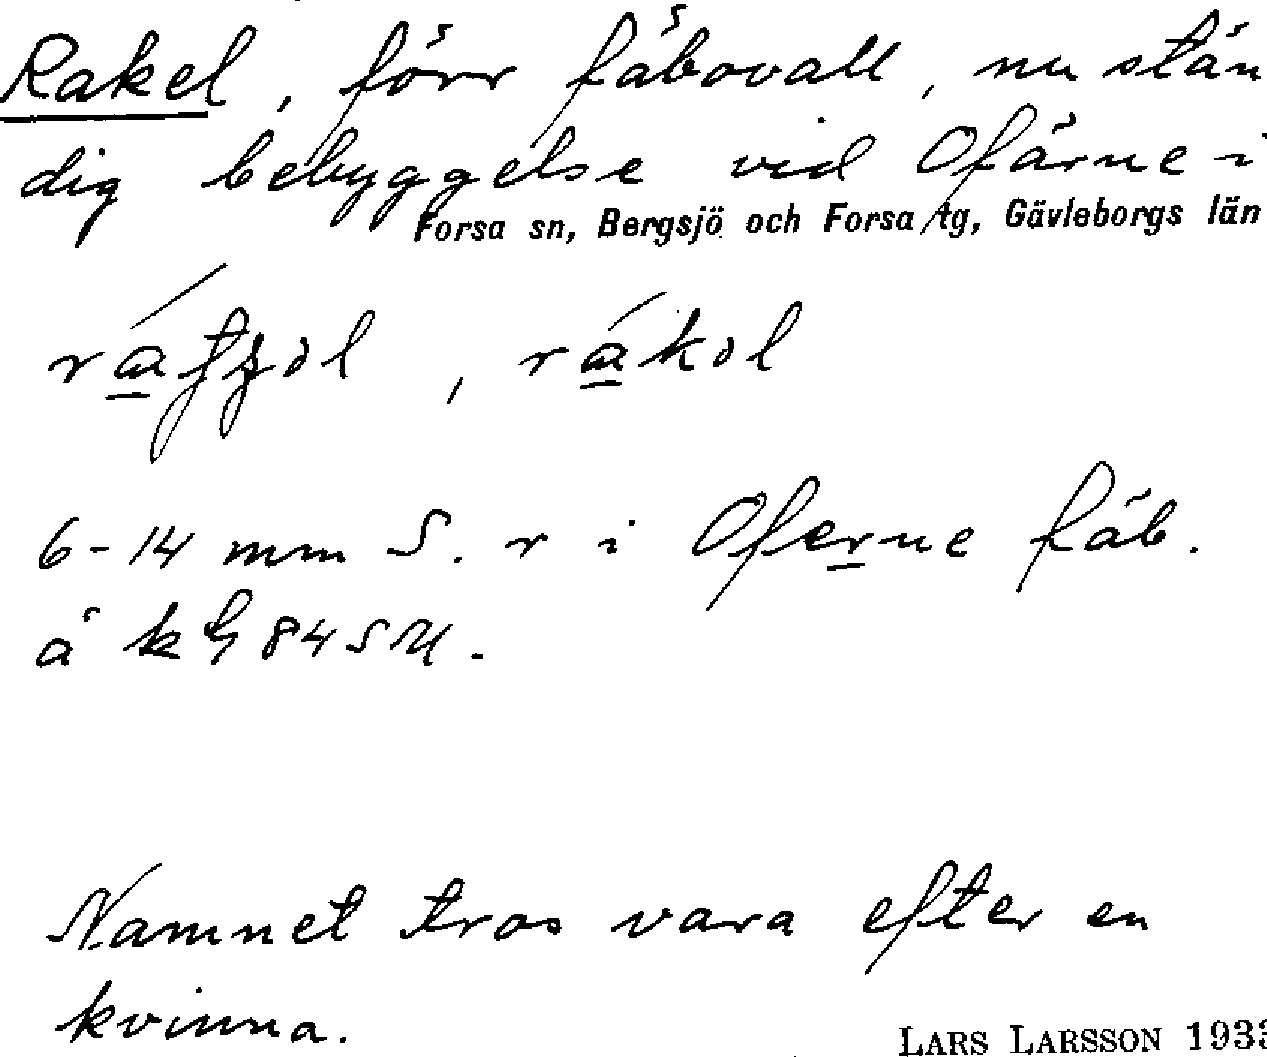 Rakel, förr fäbovall, nu stän
dig bebyggelse vid Ofärne i
Forsa sn, Bergsjö och Forsa tg, Gävleborgs län
rákəl
6-14 mm S. r i Oferne fäb.
å kG 84 SU.
Namnet tros vara efter en
kvinna.
LARS LARSSON 193